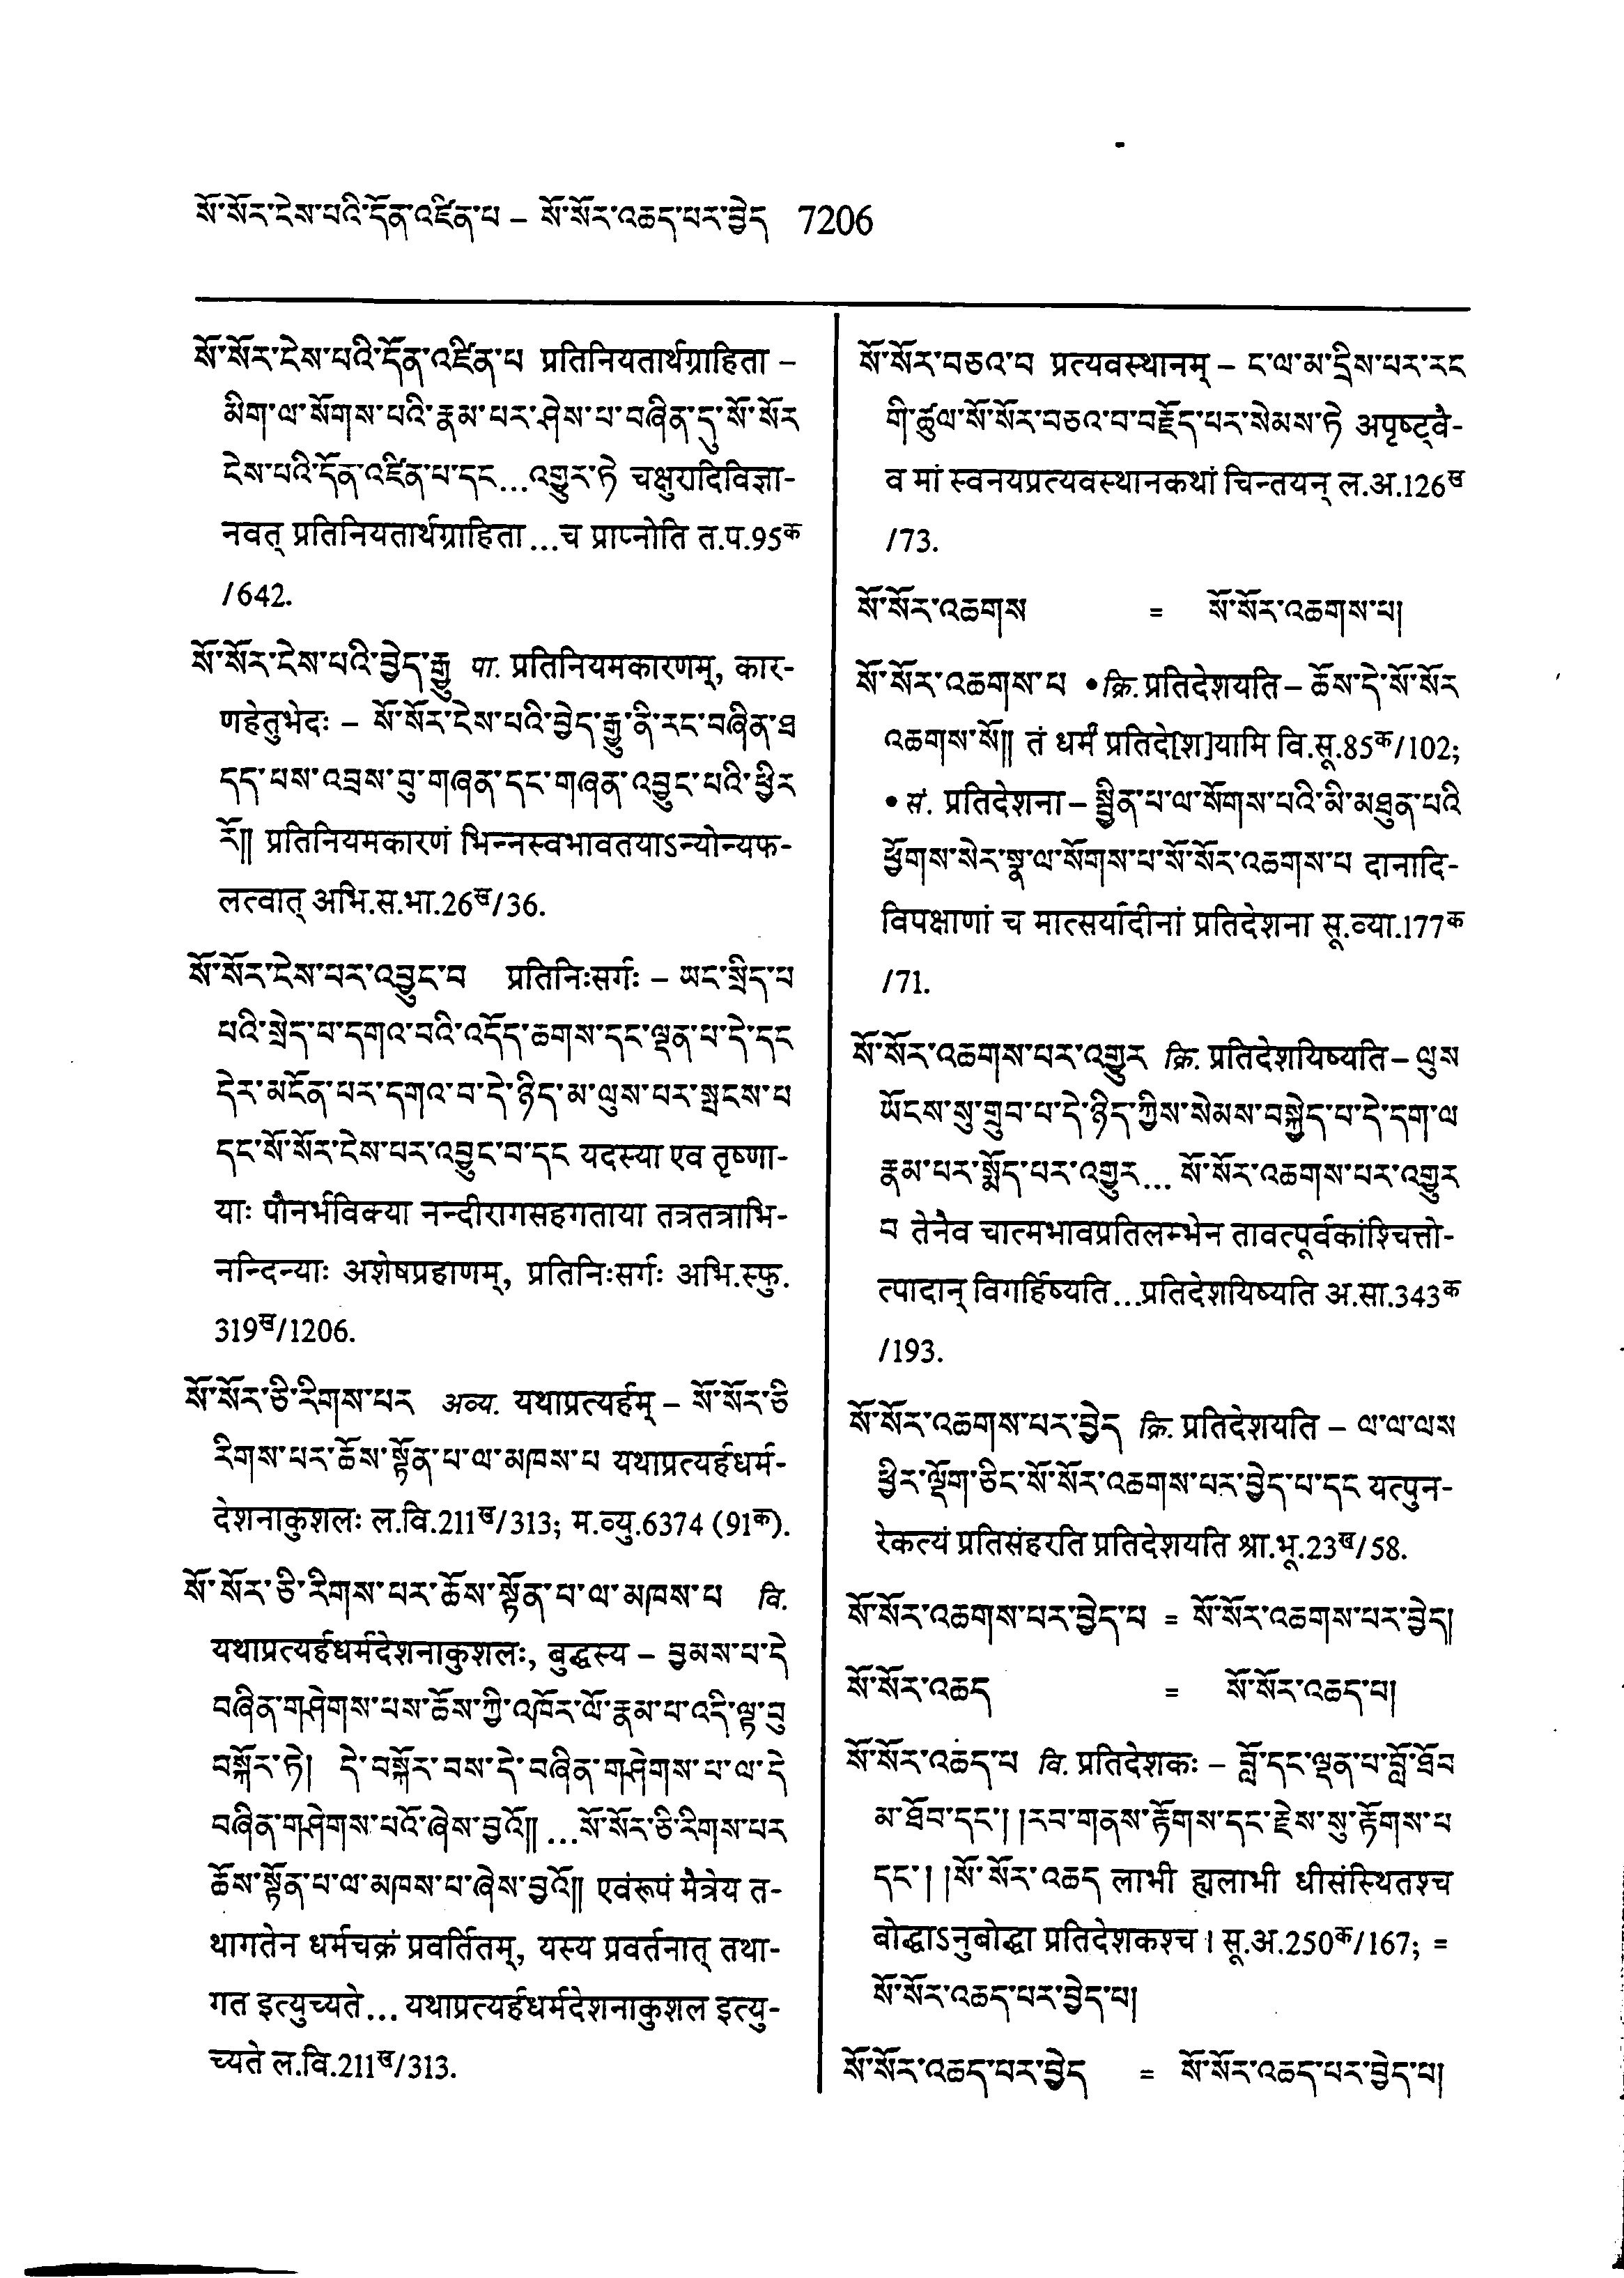 སོ་སོར་ངེས་པའི་དོན་འཛིན་པ – སོ་སོར་འཆད་པར་བྱེད 7206
སོ་སོར་ངེས་པའི་དོན་འཛིན་པ प्रतिनियतार्थग्राहिता –
མིག་ལ་སོགས་པའི་རྣམ་པར་ཤེས་པ་བཞིན་དུ་སོ་སོར
ངེས་པའི་དོན་འཛིན་པ་དང...འགྱུར་ཏེ चक्षुरादिविज्ञा-
नवत् प्रतिनियतार्थग्राहिता...च प्राप्नोति त.प.95क
/642.
སོ་སོར་ངེས་པའི་བྱེད་རྒྱུ पा. प्रतिनियमकारणम्, कार-
णहेतुभेदः – སོ་སོར་ངེས་པའི་བྱེད་རྒྱུ་ནི་རང་བཞིན་ཐ
དད་པས་འབྲས་བུ་གཞན་དང་གཞན་འབྱུང་པའི་ཕྱིར
རོ༎ प्रतिनियमकारणं भिन्नस्वभावतयाऽन्योन्यफ-
लत्वात् अभि.स.भा.26ख/36.
སོ་སོར་ངེས་པར་འབྱུང་བ प्रतिनिःसर्गः – ཡང་སྲིད་པ
པའི་སྲེད་པ་དགའ་བའི་འདོད་ཆགས་དང་ལྡན་པ་དེ་དང
དེར་མངོན་པར་དགའ་བ་དེ་ཉིད་མ་ལུས་པར་སྤངས་པ
དང་སོ་སོར་ངེས་པར་འབྱུང་བ་དང यदस्या एव तृष्णा-
याः पौनर्भविक्या नन्दीरागसहगताया तत्रतत्राभि-
नन्दिन्याः अशेषप्रहाणम्, प्रतिनिःसर्गः अभि.स्फु.
319ख/1206.
སོ་སོར་ཅི་རིགས་པར अव्य. यथाप्रत्यर्हम् – སོ་སོར་ཅི
རིགས་པར་ཆོས་སྟོན་པ་ལ་མཁས་པ यथाप्रत्यर्हधर्म-
देशनाकुशलः ल.वि.211ख/313; म.व्यु.6374 (91क).
སོ་སོར་ཅི་རིགས་པར་ཆོས་སྟོན་པ་ལ་མཁས་པ वि.
यथाप्रत्यर्हधर्मदेशनाकुशलः, बुद्धस्य – བྱམས་པ་དེ
བཞིན་གཤེགས་པས་ཆོས་ཀྱི་འཁོར་ལོ་རྣམ་པ་འདི་ལྟ་བུ
བསྐོར་ཏེ། དེ་བསྐོར་བས་དེ་བཞིན་གཤེགས་པ་ལ་དེ
བཞིན་གཤེགས་པའོ་ཞེས་བྱའོ༎ ...སོ་སོར་ཅི་རིགས་པར
ཆོས་སྟོན་པ་ལ་མཁས་པ་ཞེས་བྱའོ༎ एवंरूपं मैत्रेय त-
थागतेन धर्मचक्रं प्रवर्तितम्, यस्य प्रवर्तनात् तथा-
गत इत्युच्यते... यथाप्रत्यर्हधर्मदेशनाकुशल इत्यु-
च्यते ल.वि.211ख/313.
སོ་སོར་བཅའ་བ प्रत्यवस्थानम् – ང་ལ་མ་དྲིས་པར་རང
གི་ཚུལ་སོ་སོར་བཅའ་བ་བརྗོད་པར་སེམས་ཏེ अपृष्ट्वै-
व मां स्वनयप्रत्यवस्थानकथां चिन्तयन् ल.अ.126ख
/73.
སོ་སོར་འཆགས = སོ་སོར་འཆགས་པ།
སོ་སོར་འཆགས་པ •क्रि. प्रतिदेशयति – ཆོས་དེ་སོ་སོར
འཆགས་སོ༎ तं धर्मं प्रतिदे[श]यामि वि.सू.85क/102;
• सं. प्रतिदेशना – སྦྱིན་པ་ལ་སོགས་པའི་མི་མཐུན་པའི
ཕྱོགས་སེར་སྣ་ལ་སོགས་པ་སོ་སོར་འཆགས་པ दानादि-
विपक्षाणां च मात्सर्यादीनां प्रतिदेशना सू.व्या.177क
/71.
སོ་སོར་འཆགས་པར་འགྱུར क्रि. प्रतिदेशयिष्यति – ལུས
ཡོངས་སུ་གྲུབ་པ་དེ་ཉིད་ཀྱིས་སེམས་བསྐྱེད་པ་དེ་དག་ལ
རྣམ་པར་སྨོད་པར་འགྱུར... སོ་སོར་འཆགས་པར་འགྱུར
བ तेनैव चात्मभावप्रतिलम्भेन तावत्पूर्वकांश्चित्तो-
त्पादान् विगर्हिष्यति...प्रतिदेशयिष्यति अ.सा.343क
/193.
སོ་སོར་འཆགས་པར་བྱེད क्रि. प्रतिदेशयति – ལ་ལ་ལས
ཕྱིར་ལྡོག་ཅིང་སོ་སོར་འཆགས་པར་བྱེད་པ་དང यत्पुन-
रेकत्यं प्रतिसंहरति प्रतिदेशयति श्रा.भू.23ख/58.
སོ་སོར་འཆགས་པར་བྱེད་པ = སོ་སོར་འཆགས་པར་བྱེད།
སོ་སོར་འཆད = སོ་སོར་འཆད་པ།
སོ་སོར་འཆད་པ वि. प्रतिदेशकः – བློ་དང་ལྡན་པ་བློ་ཐོབ
མ་ཐོབ་དང་། །རབ་གནས་རྟོགས་དང་རྗེས་སུ་རྟོགས་པ
དང་། །སོ་སོར་འཆད लाभी ह्यलाभी धीसंस्थितश्च
बोद्धाऽनुबोद्धा प्रतिदेशकश्च । सू.अ.250क/167; =
སོ་སོར་འཆད་པར་བྱེད་པ།
སོ་སོར་འཆད་པར་བྱེད = སོ་སོར་འཆད་པར་བྱེད་པ།